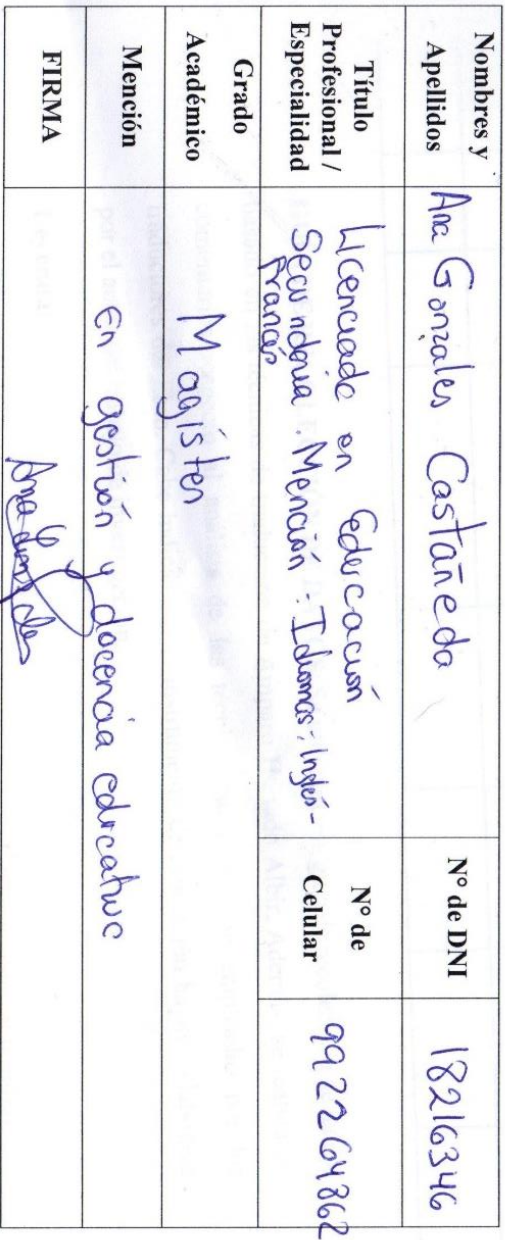 Nombres y Apellidos
Ana Gonzales Castañeda
Nº de DNI
18216346
Título Profesional / Especialidad
Licenciado en Educación
Secundaria. Mención: Idiomas: Inglés-
Francés
Nº de Celular
992264862
Grado Académico
Magíster
Mención
En gestión y docencia educativa
FIRMA